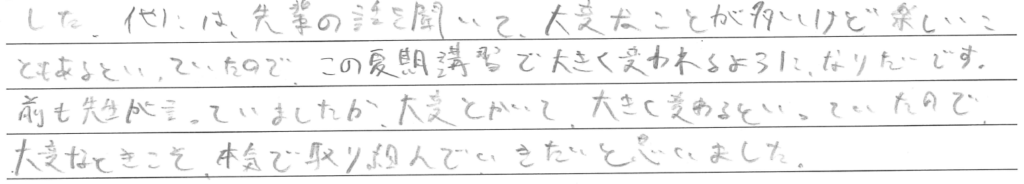 した。他には、先輩の話を聞いて、大変なことが多いけど楽しいこ
ともあるといっていたので、この夏期講習で大きく変われるようになりたいです。
前も先生が言っていましたが、大変とかいて、大きく変わるといっていたので、
大変なときこそ、本気で取り組んでいきたいと思いました。